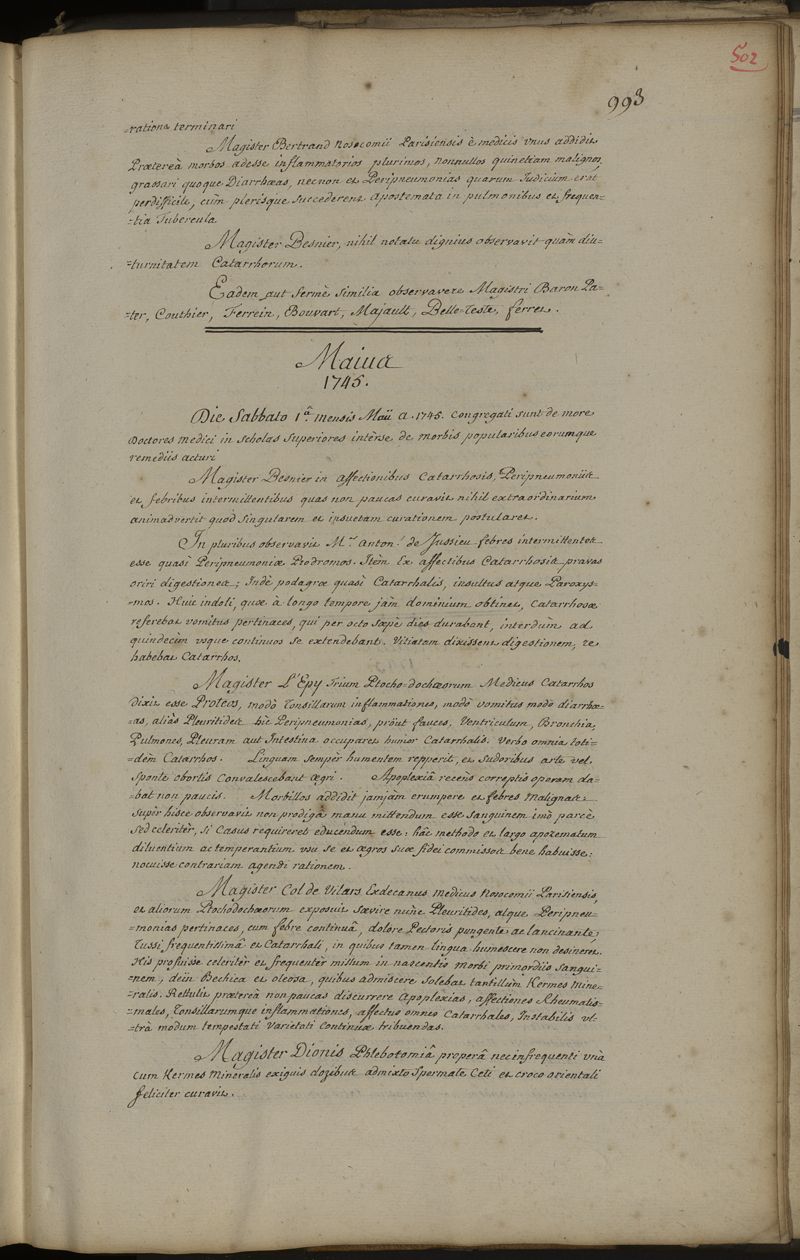 502
993
-ratione terminari
Magister Bertrand Nosocomii Parisiensis è medicis unus addidit
Prætereà morbos adesse inflammatorios plurimos, nonnullos quinetiam malignos,
grassari quoque Diarrhæas, necnon et Peripneumonias quarum Judicium erat
perdifficile, cùm plerisque succederent apostemata in pulmonibus et frequen-
-tia Tubercula
Magister Besnier, nihil notatu dignius observavit quàm diu=
=turnitatem Catarrhorum.
Eadem aut fermè similia observavere Magistri Baron Pa-
-ter, Couthier, Ferrein, Bouvart, Majault, Belle-Teste, ferret.
Maius
1745.
Die Sabbato 1â. mensis Maii a. 1745. Congregati sunt de more
Doctores medici in Scholas Superiores intèrse de morbis popularibus eorumque
remediis acturi
Magister Besnier in affectionibus Catarrhosis, Peripneumoniis
et febribus intermittentibus quas non paucas curavit nihil extraordinarium
animadvertit quod singularem et insuetam curationem postularet.
In pluribus observavit Mr. Anton. de Jussieu febres intermittentes
esse quasi Peripneumoniæ Prodromos. Itèm Ex affectibus Catarrhosis pravas
oriri digestiones; Indè podagræ quasi Catarrhalis, insultus atque Paroxys-
-mos. Huic indoli, quæ à longo tempore jàm dominium obtinet, Catarrhosæ
referebat vomitus pertinaces, qui per octo sæpè dies durabant, interdùm ad
quindecim usque continuos se extendebant. Vitiatam dixissent digestionem, se
habebat Catarrhos.
Magister L'Epy Trium Ptochodochæorum Medicus Catarrhos
dixit esse Proteos, modò Tonsillarum inflammationes, modò vomitus modò diarrhæ-
-as, aliàs Pleuritides hic Peripneumonias, proùt fauces, Ventriculum, Bronchia,
Pulmones, Pleuram aut Intestina occuparet humor Catarrhalis. Verbo omnia toti=
=dèm Catarrhos. Linguam semper humentem repperit, et sudoribus arte vel
sponte obortis Convalescebant ægri. Apoplexiâ recens correptis operam da-
-bat non paucis. Morbillos addidit jamjàm erumpere et febres malignas:
Super hisce observavit non prodigâ manu mittendum esse sanguinem imò parcè
sed celeritèr, si Casus requireret educendum esse: hâc methodo et largo apozematum
diluentium ac temperantium usu se et ægros suæ fidei commissos bene habuisse:
nocuisse contrariam agendi rationem.
Magister Col de Vilars Exdecanus medicus Nosocomii Parisiensis,
et aliorum Ptochodochæorum exposuit sævire nunc Pleuritides, atque Peripneu=
=monias pertinaces, cum febre continuâ, dolore Pectoris pungente ac lancinante,
Tussi frequentissimâ et Catarrhali, in quibus tamen lingua humescere non desineret.
His profuisse celeritèr et frequentèr missum in nascentis morbi primordiis sangui=
=nem, dein Bechica et oleosa, quibus admiscere solebat tantillum Kermes Mine=
=ralis. Rettulit prætereà non paucas discurrere Apoplexias, affectiones Rheumatis=
=males, Tonsillarumque inflammationes, affectus omnes Catarrhales, Instabilis ul-
-trà modum tempestati varietati continuæ tribuendas.
Magister Dionis Phlebotomiâ properâ nec infrequenti unà
cum Kermes Mineralis exiguis dozibus admixto Spermate Ceti et croco orientali
feliciter curavit.